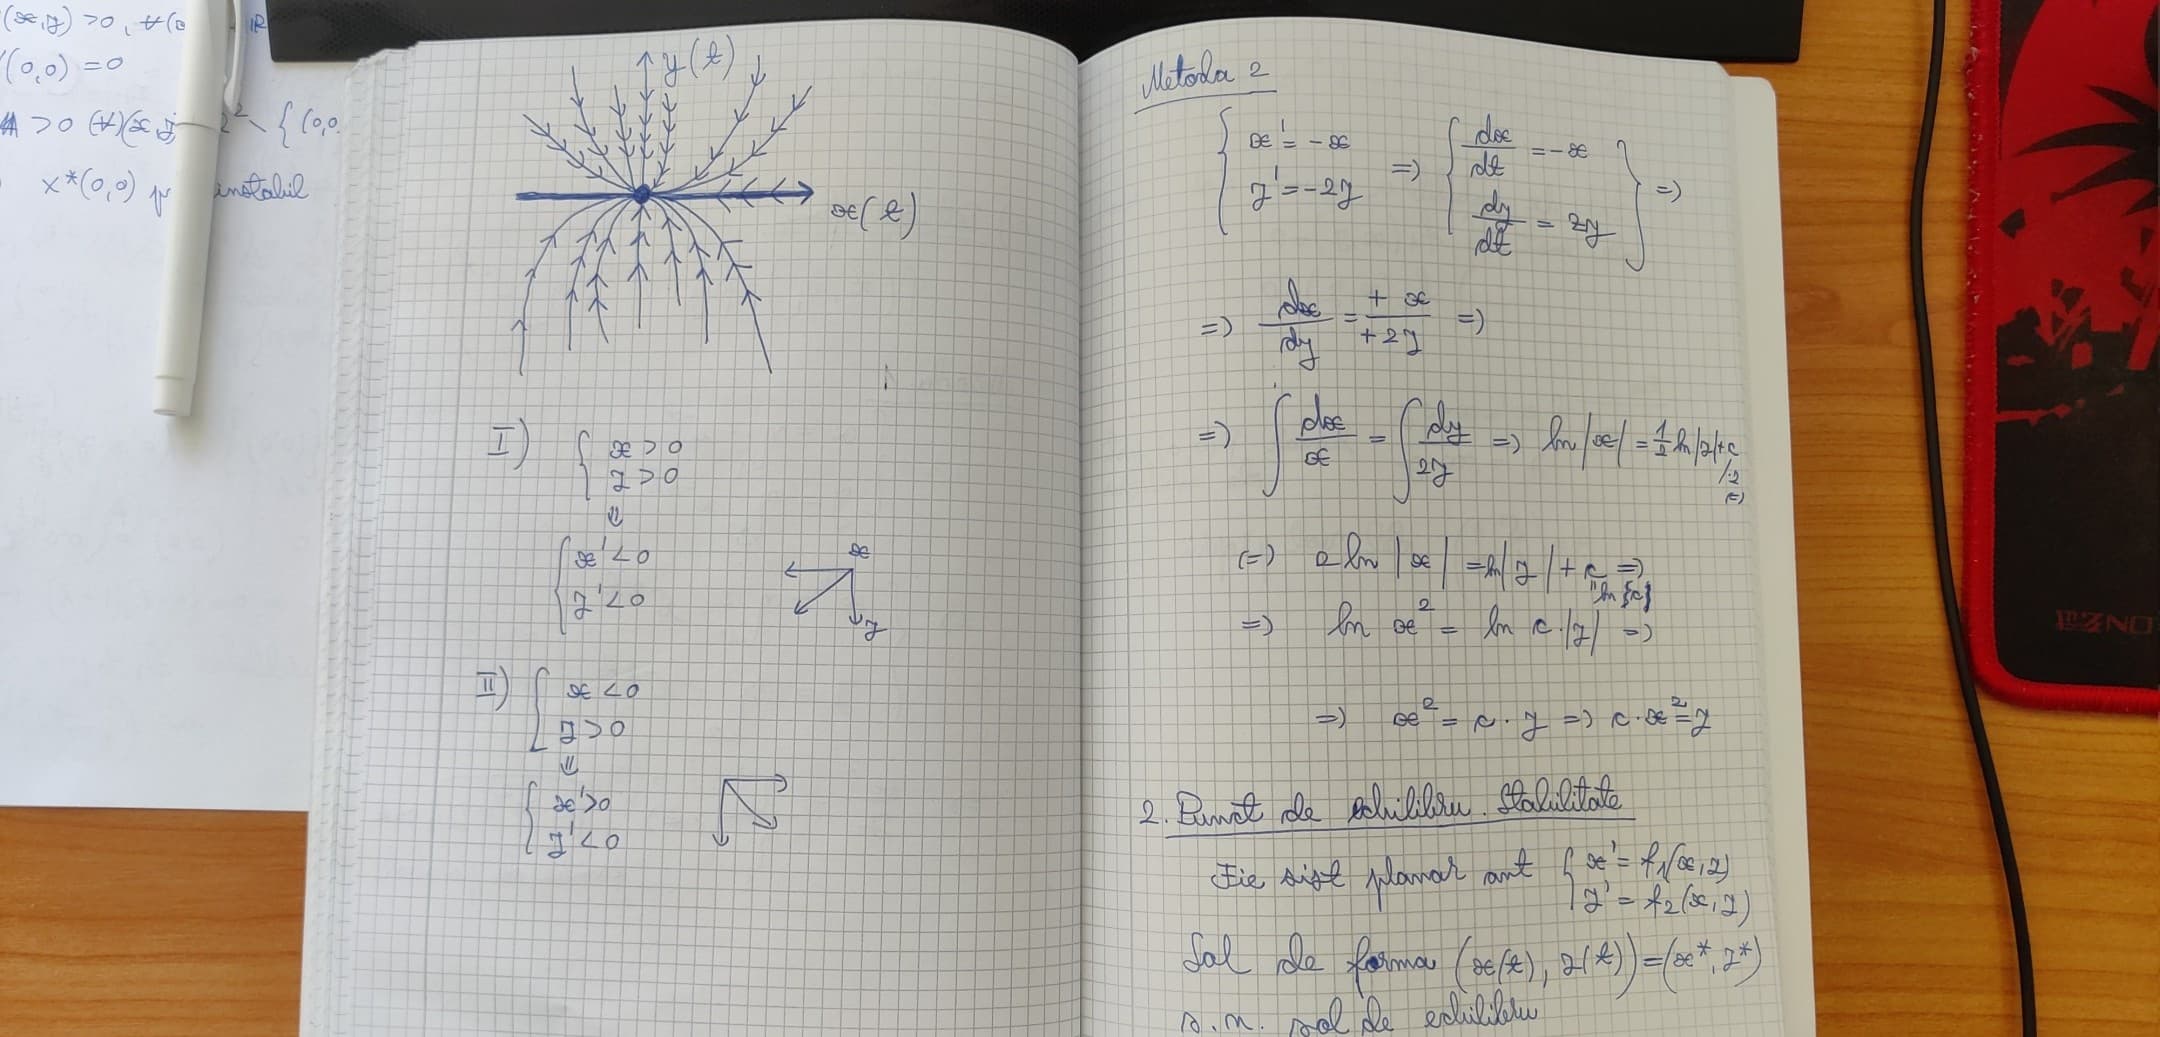 (x,y) >0, ∀(
(0,0) =0
>0 (∀)(x,y 2 \ {(0,0
x*(0,0) p instabil
y(t)
x(t)
I) { x > 0
y > 0
⇓
{ x' < 0
y' < 0
x
y
II) { x < 0
y > 0
⇓
{ x' > 0
y' < 0
Metoda 2
{ x' = -x
y' = -2y => { dx/dt = -x
dy/dt = 2y } =>
=> dx/dy = + x / + 2y =>
=> ∫ dx/x = ∫ dy/2y => ln|x| = 1/2 ln|y|+c /·2
(=)
(=) 2 ln |x| = ln|y| + c =>
" ln{c}
=> ln x² = ln c·|y| =>
=> x² = c · y => c · x² = y
2. Punct de echilibru. Stabilitate
Fie sist planar aut { x' = f1(x,y)
y' = f2(x,y)
Sol de forma (x(t), y(t)) = (x*, y*)
s.n. sol de echilibru